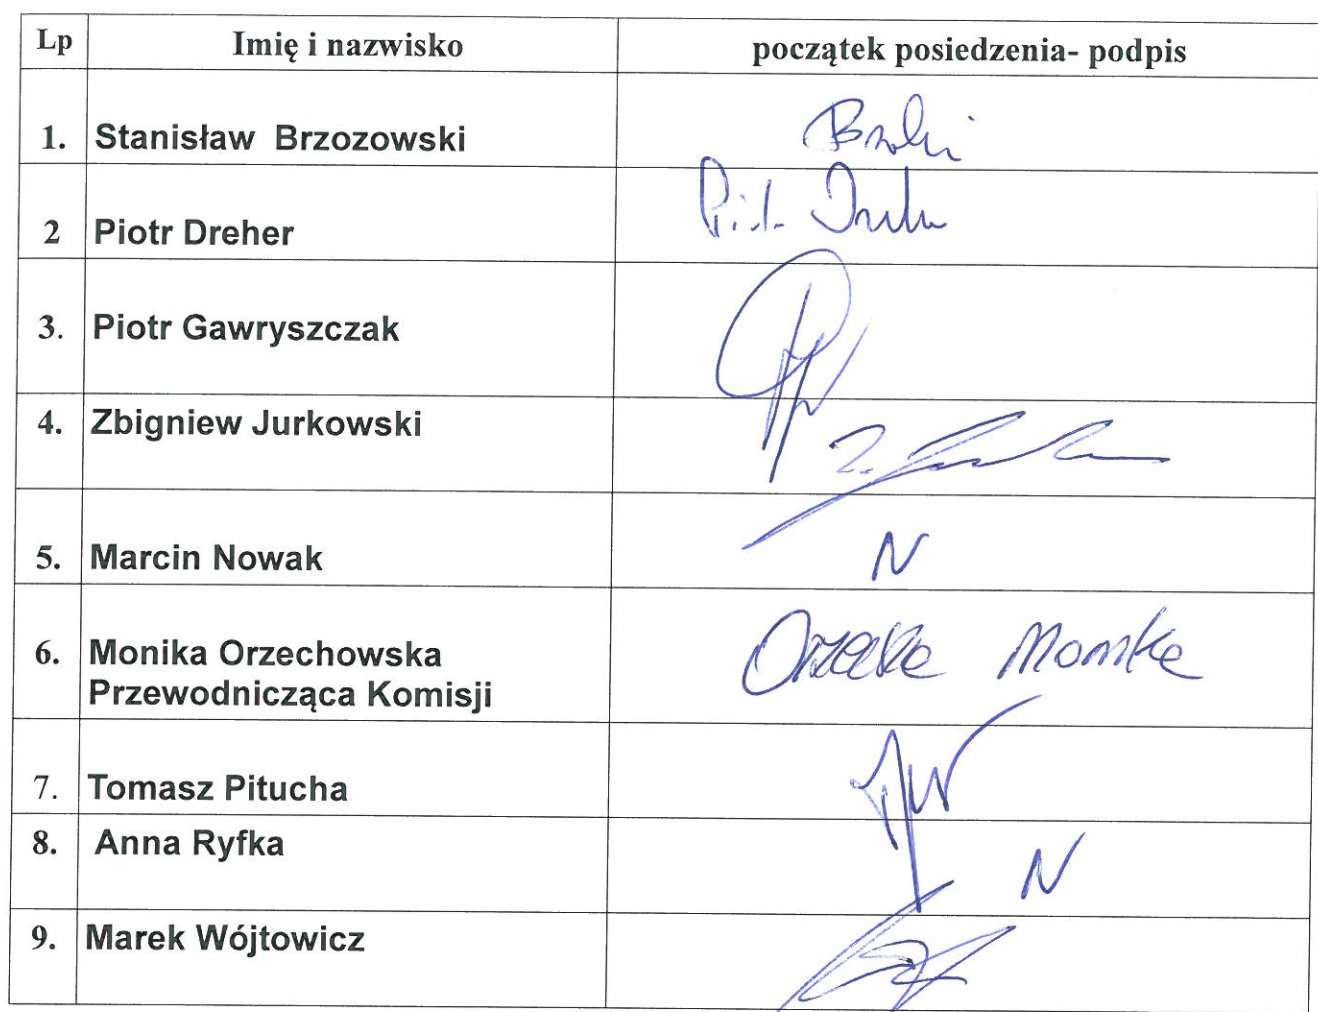 Lp Imię i nazwisko początek posiedzenia- podpis
1. Stanisław Brzozowski
2 Piotr Dreher
3. Piotr Gawryszczak
4. Zbigniew Jurkowski
5. Marcin Nowak N
6. Monika Orzechowska
Przewodnicząca Komisji
7. Tomasz Pitucha
8. Anna Ryfka N
9. Marek Wójtowicz